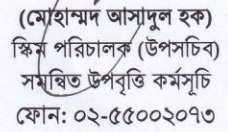 (মোহাম্মদ আসাদুল হক)
স্কিম পরিচালক (উপসচিব)
সমন্বিত উপবৃত্তি কর্মসূচি
ফোন: ০২-৫৫০০২০৭৩